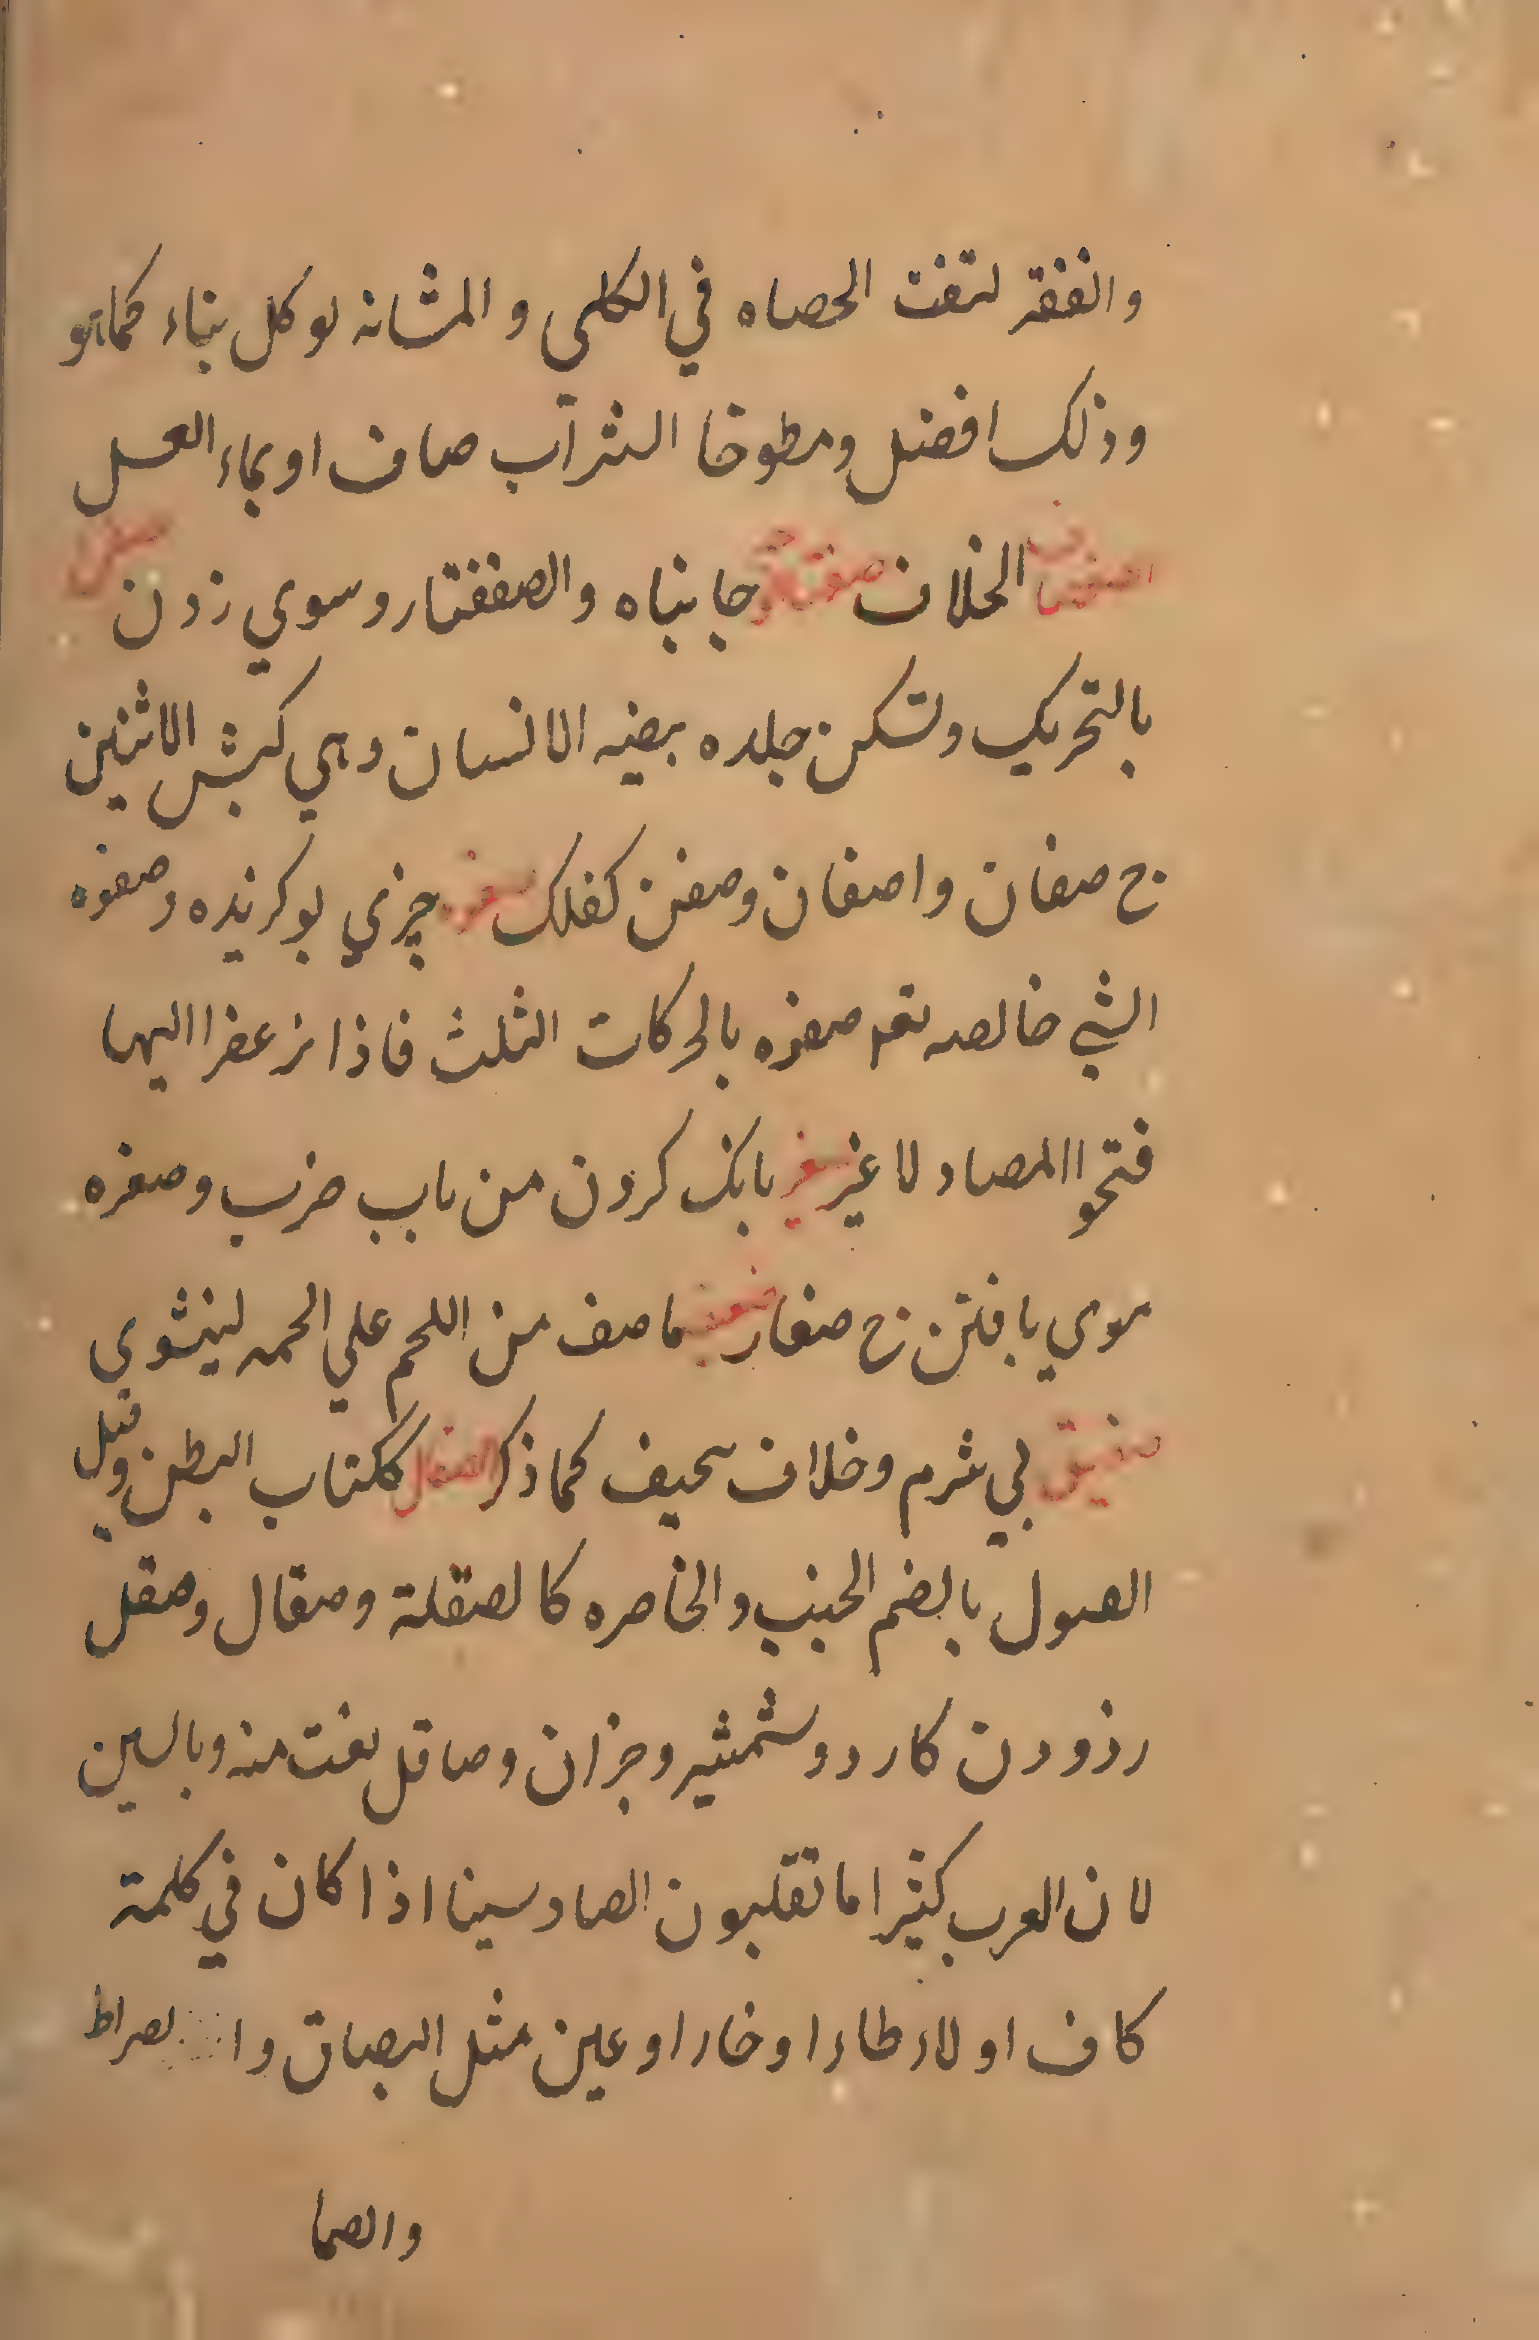 والفقر لتفت الحصاه في الكلى و المثانه لوكل بناء كماهو
وذلك افضل ومطوخا الشراب صاف او بماء العسل
الخلاف جا بناه والصففتار وسوي زدن صفن
بالتحريك ولتسكن جلده بيضه الانسان وهي كبش الاثنين
ج صفان واصفان وصفن كفلك صفوه چزي بوكرنده وصفوه
الشي خالصه صفوه بالحركات الثلث فاذا نزعفرا اليها
فتحوا المصاد لا غير صفير بانك كردن من باب ضرب وصفره
موي بافتن ج صفار صفيف ماصف من اللحم علي الحمر لينشوى
صفيق بي شرم وخلاف سحيف كما ذكر الصقال ككتاب البطن وقيل
الصول بالضم الجنب والخاصره كالصقلة وصقال وصقل
رذودن كارد وشمشير وجزان وصاقل لغت منه وبالسين
لان العرب كثيرا ما تقلبون الصاد سينا اذا كان في كلمة
كاف اولا طاء اوخار اوعين مثل البصاق والصراط
والصما